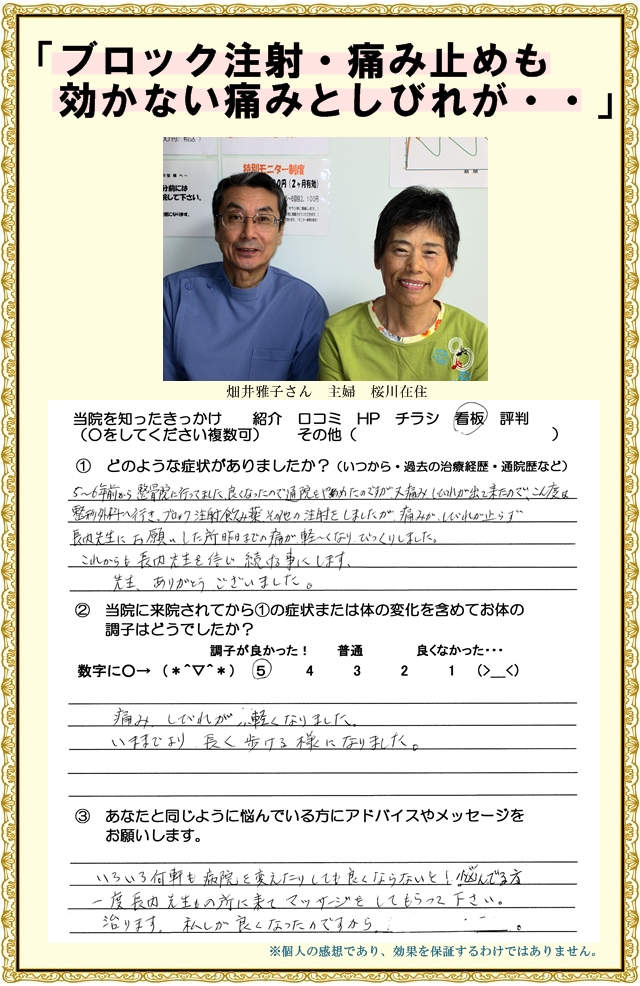 「ブロック注射・痛み止めも
効かない痛みとしびれが・・」
特別モニター制度
(2ヶ月有効)
畑井雅子さん　主婦　桜川在住
当院を知ったきっかけ　紹介　口コミ　HP　チラシ　看板　評判
(〇をしてください複数可)　その他(　　　)
① どのような症状がありましたか？(いつから・過去の治療経歴・通院歴など)
5〜6年前から整骨院に行ってました。良くなったので通院をやめたのですが又痛みしびれが出て来たので、こん度は
整形外科へ行き、ブロック注射飲み薬その他の注射をしましたが、痛みが、しびれが止らず
長内先生にお願いした所昨日までの痛が軽〜くなりびっくりしました。
これからも長内先生を信じ続ける事にします。
先生、ありがとうございました。
② 当院に来院されてから①の症状または体の変化を含めてお体の
調子はどうでしたか？
調子が良かった！　普通　良くなかった・・・
数字に〇→ (＊^▽^＊) 5 4 3 2 1 (>__<)
痛み、しびれが、軽くなりました。
いままでより長く歩ける様になりました。
③ あなたと同じように悩んでいる方にアドバイスやメッセージを
お願いします。
いろいろ何軒も病院を変えたりしても良くならないと！悩んでる方
一度長内先生の所に来てマッサージをしてもらって下さい。
治ります。私しが良くなったのですから
※個人の感想であり、効果を保証するわけではありません。